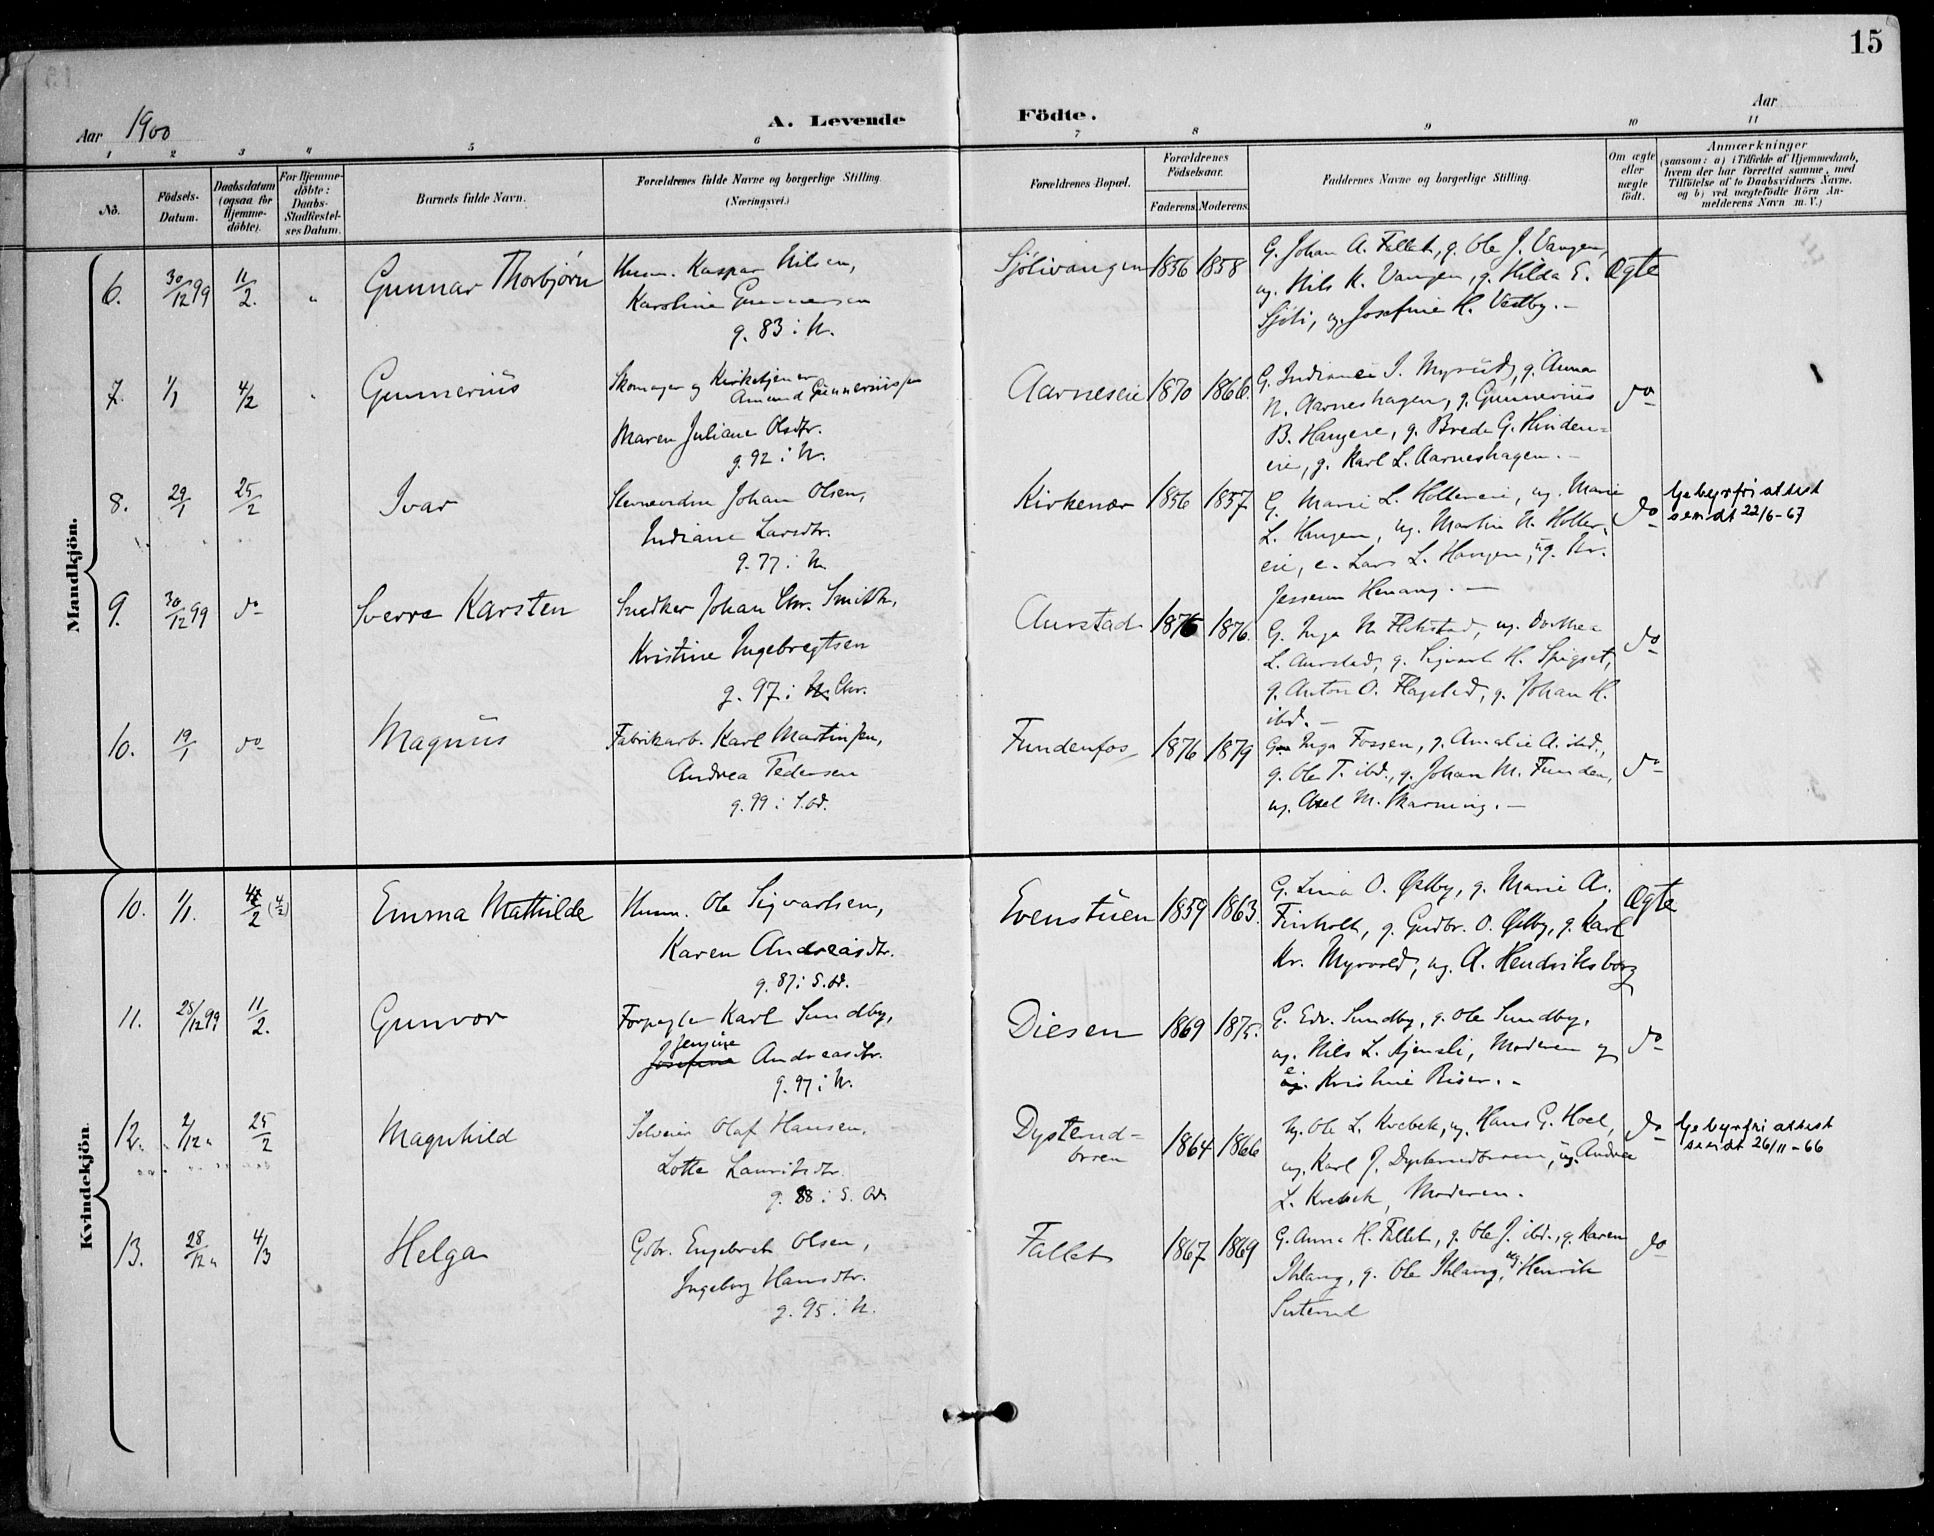 15
Aar 1900
A. Levende Födte.
Aar
1 2 3 4 5 6 7 8 9 10 11
No.
Födsels-Datum.
Daabsdatum (ogsaa for Hjemme-döbte).
For Hjemme-döbte: Daabs-Stadfæstel-ses Datum.
Barnets fulde Navn.
Forældrenes fulde Navne og borgerlige Stilling. (Næringsvei.)
Forældrenes Bopæl.
Forældrenes Födselsaar.
Faderens. Moderens.
Faddernes Navne og borgerlige Stilling.
Om ægte eller uægte födt.
Anmærkninger
(saasom: a) i Tilfælde af Hjemmedaab, hvem der har forrettet samme, med Tilföielse af to Daabsvidners Navne, og b) ved uægtefödte Börn An-melderens Navn m. V.)
Mandkjön.
6. 30/12 99 11/2. " Gunnar Thorbjørn
Husm. Kaspar Nilsen,
Karoline Gunnersen
g. 83 i N.
Sjölivangen 1856 1858
G. Johan A. Fallet, g. Ole J. Vangen,
ug. Nils K. Vangen, g. Hilda E.
Sjöli, ug. Josefine H. Vestby. –
Ægte
7. 1/1 4/2 " Gunnerius
Skomager og Kirketjener
Amund Gunneriussen
Maren Juliane Olsdtr.
g. 92 i N.
Aarneseie 1870 1866.
G. Indiane I. Myrud, g. Anna
N. Aarneshagen, g. Gunnerius
B. Haugeie, g. Brede G. Hinden=
eie, g. Karl L. Aarneshagen. –
do
8. 29/1 25/2 Ivar
Johan Olsen,
Indiane Larsdtr.
g. 77 i N.
Kirkenær 1856 1857
G. Marie L. Holtereie, ug. Marie
L. Haugen, ug. Martin N. Holter-
eie, e. Lars L. Haugen, ug. Kr.
Henang. –
do
Gebyrfri attest
sendt 22/6-67
9. 30/12 99 do Sverre Karsten
Snedker Johan Chr. Smith,
Kristine Ingebregtsen
g. 97 i Chr.
Aurstad 1876 1876.
G. Inga N. ug. Dorthea
L. Aurstad, g. Sigvart H. Spigset,
g. Anton O. Flagstad, g. Johan H.
ibd. –
do
10. 19/1 do Magnus
Fabrikarb. Karl Martinsen,
Andrea Pedersen
g. 99 i S.Od.
Fundenfos 1876 1879
G. Inga Fossen, g. Amalie A. ibd.,
g. Ole T. ibd., g. Johan M. Funden,
ug. Axel M. Skarning. –
do
Kvindekjön.
10. 1/1. 4/2 (4/2) Emma Mathilde
Husm. Ole Sigvartsen,
Karen Andreasdtr.
g. 87 i S.Od.
Evenstuen 1859 1863.
G. Lina O. Østby, g. Marie A.
Finholt, g. Gudbr. O. Østby, g. Karl
Kr. Myrvold, ug. A. Hendriksborg
Ægte
11. 25/12 99 11/2. Gunvor
Forpagter Karl Sundby,
Jenjine
Josefine Andreasdtr.
g. 97 i N.
Diesen 1869 1875.
G. Edv. Sundby, g. Ole Sundby,
ug. Nils L. Moderen og
e. Kristine Riser. –
do
12. 2/12 " 25/2 Magnhild
Selveier Olaf Hansen,
Lotte Lauritsdtr.
g. 88 i S. Od.
Dysterud=
broen 1864 1866
Ug. Ole L. Kvebek, ug. Hans G. Hoel,
ug. Karl J. Dysterudbroen, ug. Andrea
L. Kvebek, Moderen.
do
Gebyrfri attest
sendt 26/11-66
13. 28/12 " 4/3 Helga
Gbr. Engebret Olsen,
Ingeborg Hansdtr.
g. 95 i N.
Fallet 1867 1869
G. Anna H. Fallet, g. Ole J. ibd., g. Karen
Ihlang, g. Ole Ihlang, ug. Henrik
Suterud
do